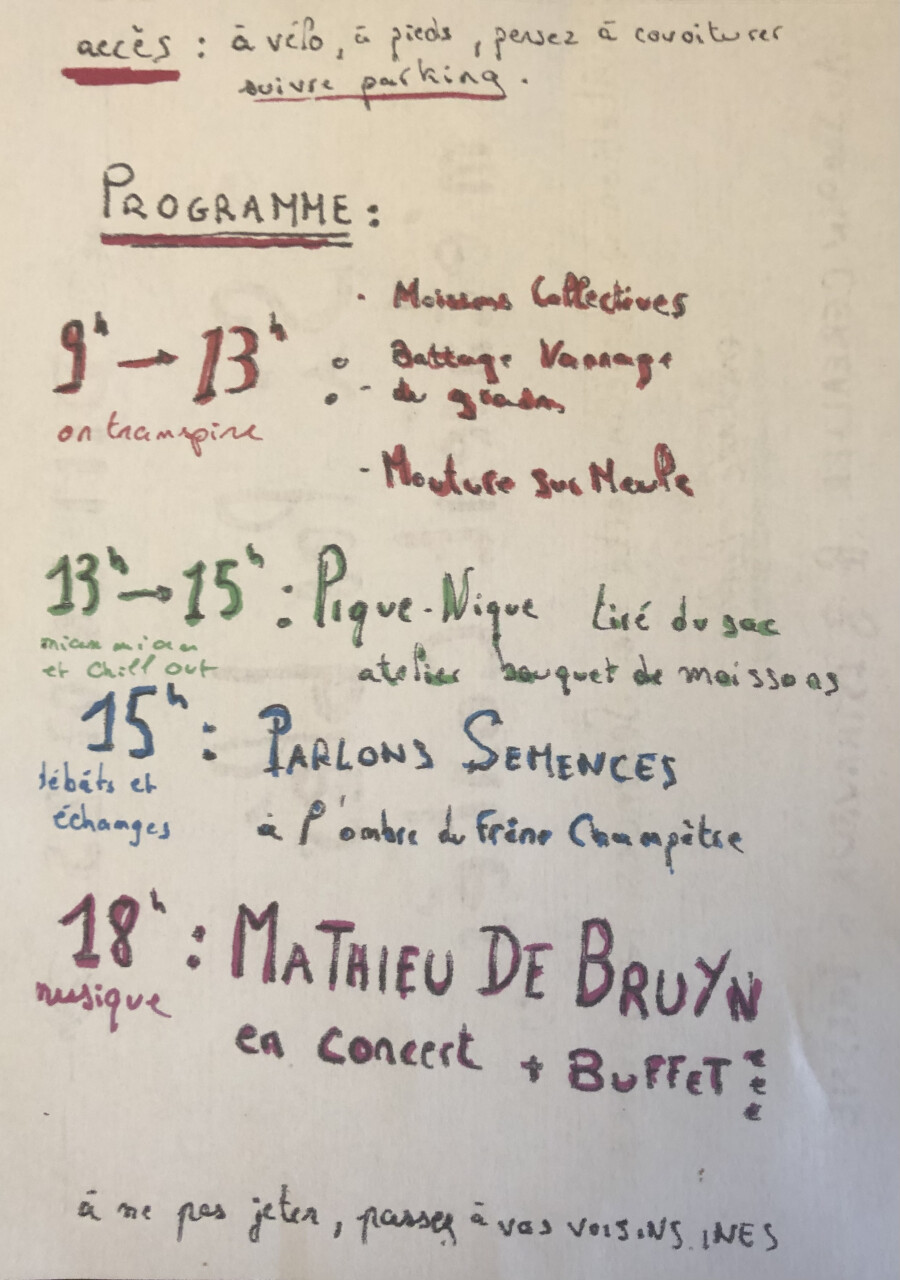 accès : à vélo, à pieds, pensez à covoiturer
suivre parking.
PROGRAMME :
9h → 13h :
on transpire
· Moissons Collectives
Battage Vannage
- de grains
- Mouture sur Meule
13h → 15h : Pique-Nique tiré du sac
miam miam
et chill out
atelier bouquet de moissons
15h : PARLONS SEMENCES
débats et
échanges
à l'ombre du Frêne Champêtre
18h : MATHIEU DE BRUYN
musique
en concert + BUFFET
à ne pas jeter, passez à vos voisins.ines